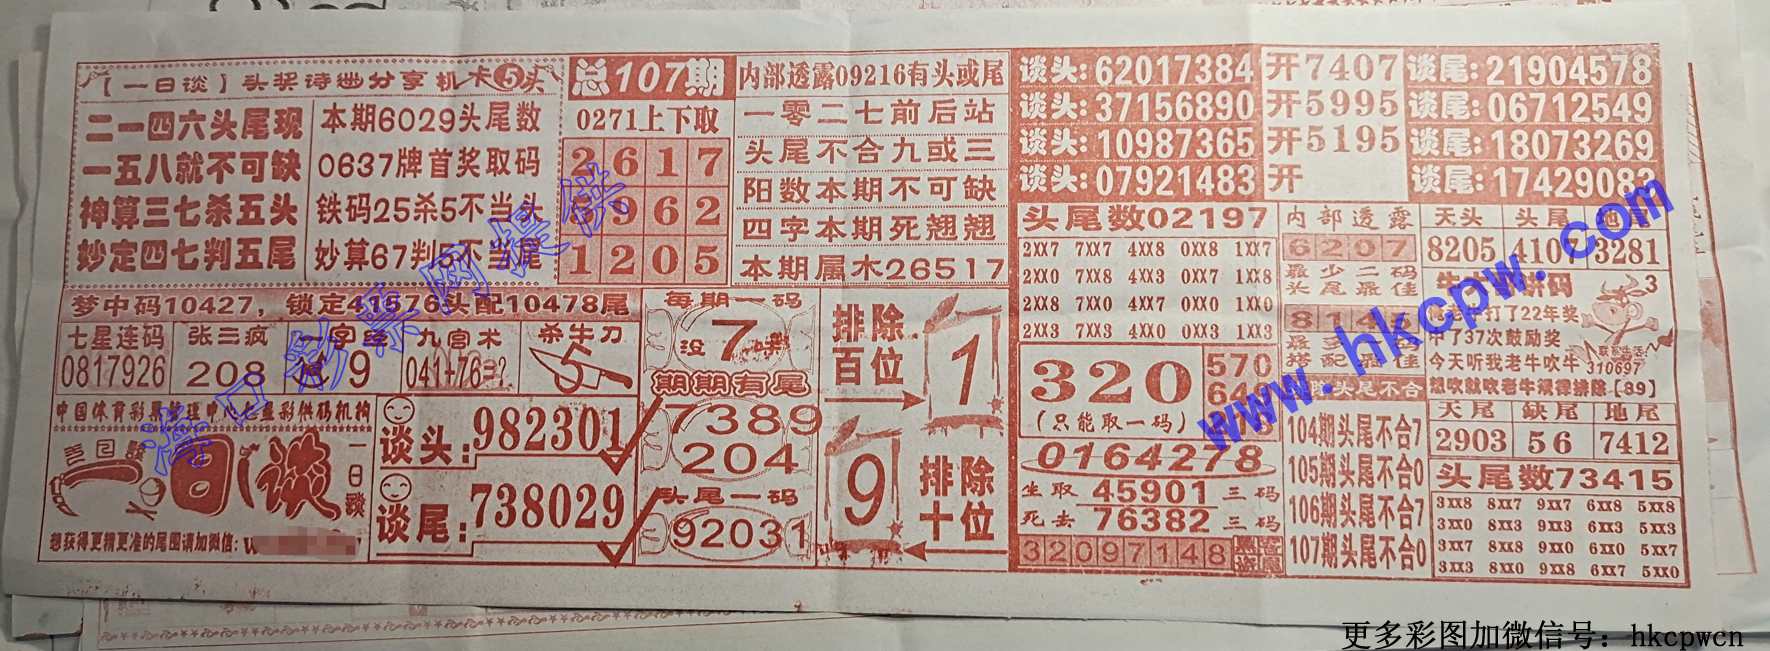 【一日谈】头奖诗迷分享机 卡5头
二一四六头尾现
一五八就不可缺
神算三七杀五头
妙定四七判五尾
本期6029头尾数
0637牌首奖取码
铁码25杀5不当头
妙算67判5不当尾
总107期
0271上下取
2617
962
1205
内部透露09216有头或尾
一零二七前后站
头尾不合九或三
阳数本期不可缺
四字本期死翘翘
本期属木26517
谈头:62017384 开7407 谈尾:21904578
谈头:37156890 开5995 谈尾:06712549
谈头:10987365 开5195 谈尾:18073269
谈头:07921483 开 谈尾:17429083
梦中码10427, 锁定41576头配10478尾
七星连码
0817926
张三疯
208
一字
9
九宫术
041+76=?
杀牛刀
5
每期一码
没 7
期期有尾
7389
204
头尾一码
92031
排除百位 1
9 排除十位
中国体育彩票管理中心七星彩供码机构
一日谈
一日谈
想获得更精更准的尾图请加微信:
谈头:982301
谈尾:738029
头尾数02197
2XX7 7XX7 4XX8 0XX8 1XX7
2XX0 7XX8 4XX3 0XX7 1XX8
2XX8 7XX0 4XX7 0XX0 1XX0
2XX3 7XX3 4XX0 0XX3 1XX3
320
(只能取一码)
570
0164278
生取 45901 三码
死去 76382 三码
32097148
内部透露
6207
最少二码
头尾最佳
搭配最佳
头尾不合
104期头尾不合7
105期头尾不合0
106期头尾不合7
107期头尾不合0
天头 头尾 地
8205 4107 3281
3
打了22年奖
中了37次鼓励奖
今天听我老牛吹牛
联系生活
310697
想吹就吹老牛规律排除【89】
天尾 缺尾 地尾
2903 56 7412
头尾数73415
3XX8 8XX7 9XX7 6XX8 5XX8
3XX0 8XX3 9XX3 6XX3 5XX3
3XX7 8XX8 9XX0 6XX0 5XX7
3XX3 8XX0 9XX8 6XX7 5XX0
海口彩票网提供
www.hkcpw.com
更多彩图加微信号：hkcpwcn